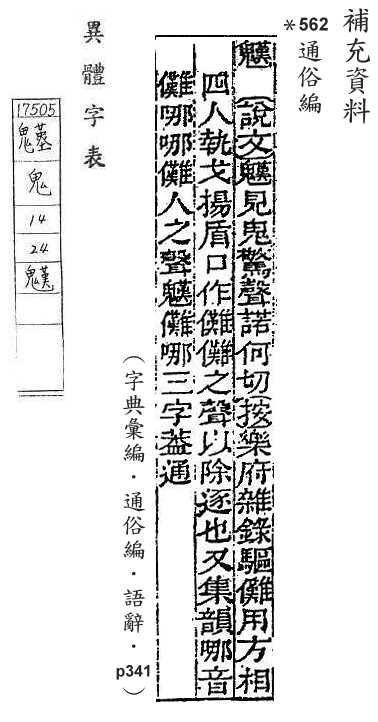 補充資料
*562
通俗編
䰡(説文)䰡見鬼驚聲諾何切(按樂府雜錄驅儺用方相
四人執戈揚盾口作儺儺之聲以除逐也又集韻哪音
儺哪哪儺人之聲䰡儺哪三字葢通
(字典彙編．通俗編．語辭．p341)
異體字表
17505
鬼
14
24
䰡